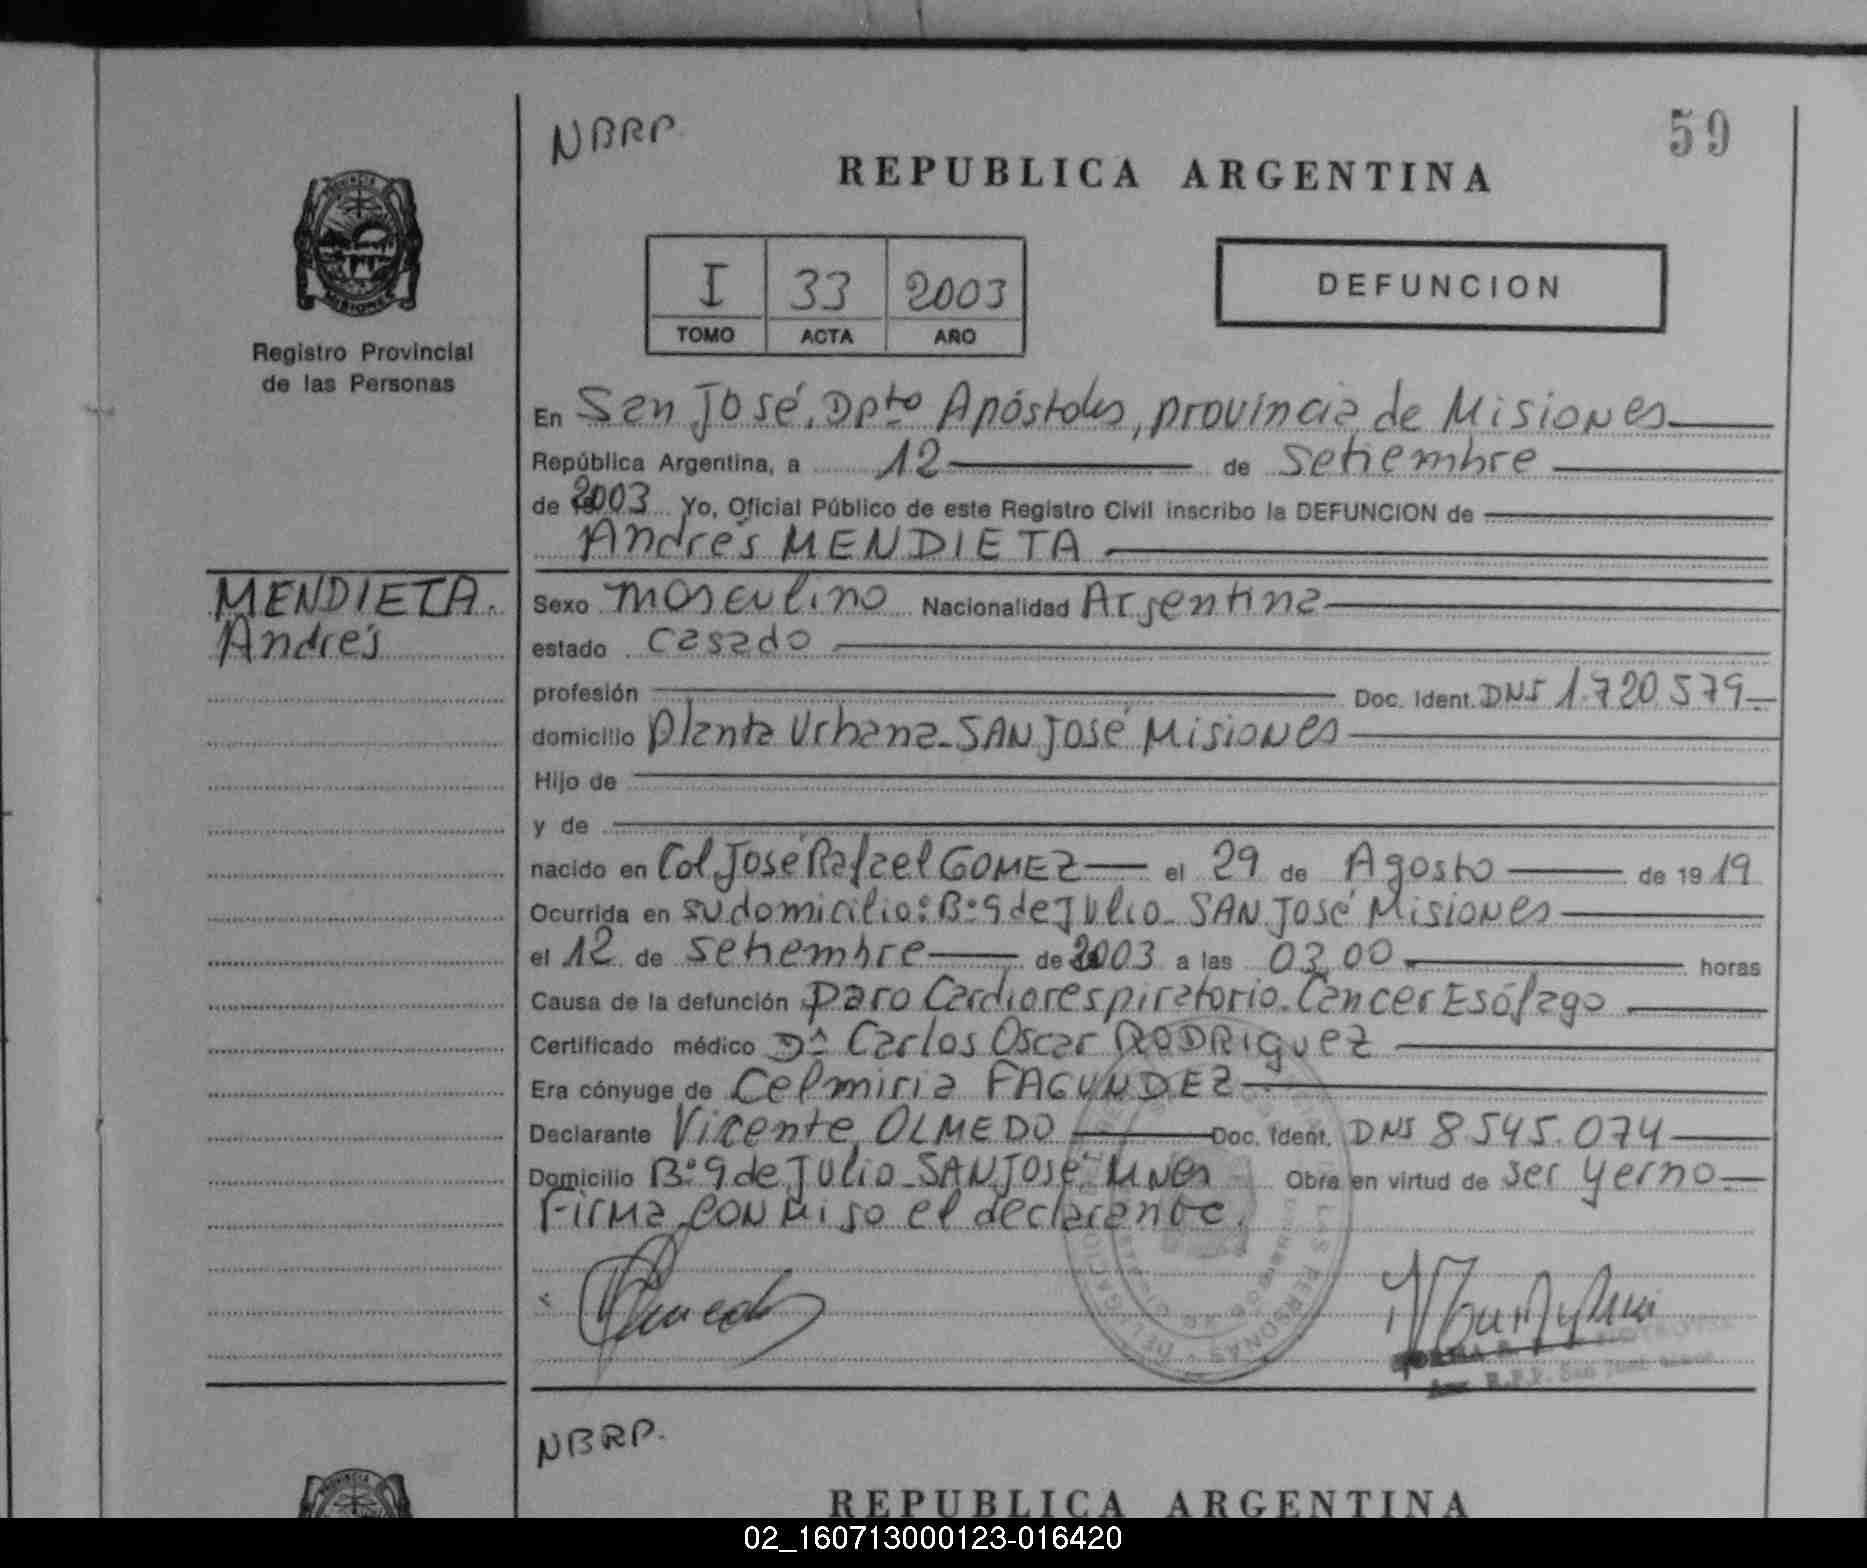 NBRP.
59
REPUBLICA ARGENTINA
PROVINCIA DE
MISIONES
Registro Provincial
de las Personas
I 33 2003
TOMO ACTA AÑO
DEFUNCION
En San José, Dpto Apóstoles, provincia de Misiones
República Argentina, a 12 de Setiembre
de 2003 Yo, Oficial Público de este Registro Civil inscribo la DEFUNCION de
Andrés MENDIETA
MENDIETA.
Andrés
Sexo masculino Nacionalidad Argentina
estado casado
profesión Doc. Ident. DNI 1.720.579
domicilio Planta Urbana-SAN José Misiones
Hijo de
y de
nacido en Col José Rafael GOMEZ el 29 de Agosto de 1919
Ocurrida en su domicilio: Bº 9 de Julio- SAN José Misiones
el 12 de setiembre de 2003 a las 03,00 horas
Causa de la defunción Paro Cardiorespiratorio. Cancer Esófago
Certificado médico Dr Carlos Oscar RODRIguez
Era cónyuge de Celmiria FAGUNDEZ
Declarante Vicente OLMEDO Doc. Ident. DNI 8.545.074
Domicilio Bº 9 de Julio-SAN José Mnes Obra en virtud de ser yerno
Firma conmiso el declarante.
NBRP.
PROVINCIA
REPUBLICA ARGENTINA
02_160713000123-016420